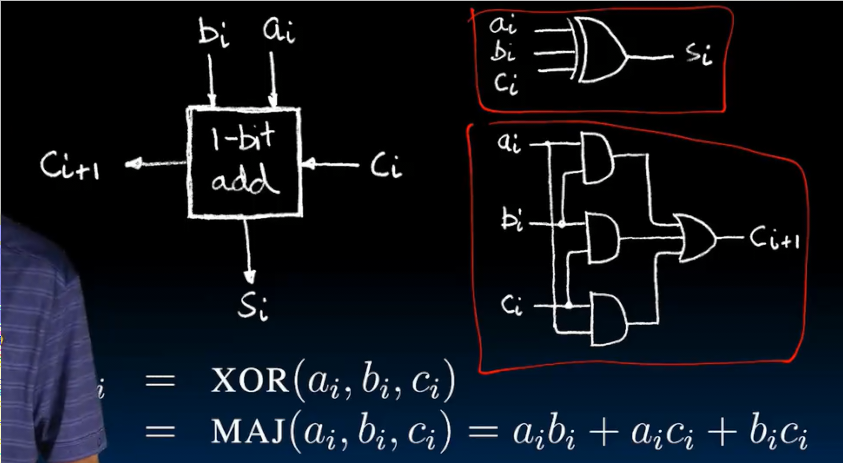 bᵢ aᵢ
1-bit
add
Cᵢ₊₁
Cᵢ
Sᵢ
aᵢ
bᵢ
Cᵢ
Sᵢ
aᵢ
bᵢ
Cᵢ
Cᵢ₊₁
ᵢ = XOR(aᵢ, bᵢ, cᵢ)
= MAJ(aᵢ, bᵢ, cᵢ) = aᵢbᵢ + aᵢcᵢ + bᵢcᵢ